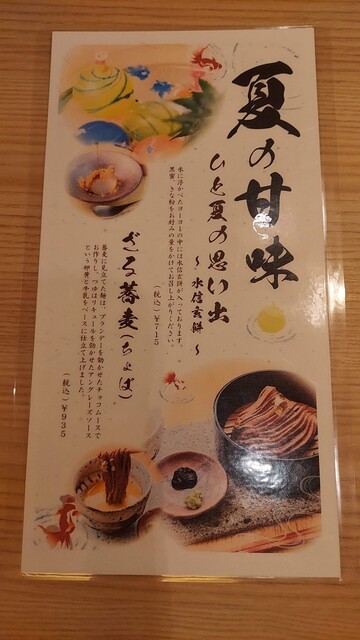 夏の甘味
ひと夏の思い出
～水信玄餅～
水に浮かべたヨーヨーの中には水信玄餅が入っております。
黒蜜、きな粉をお好みの量をかけてお召し上がりください。
(税込)￥715
ざる蕎麦(ちょば)
蕎麦に見立てた麺は、ブランデーを効かせたチョコムースで
お作り、つゆはリキュールを効かせたアングレーズソース
という卵黄と牛乳をベースに仕立て上げました。
(税込)￥935